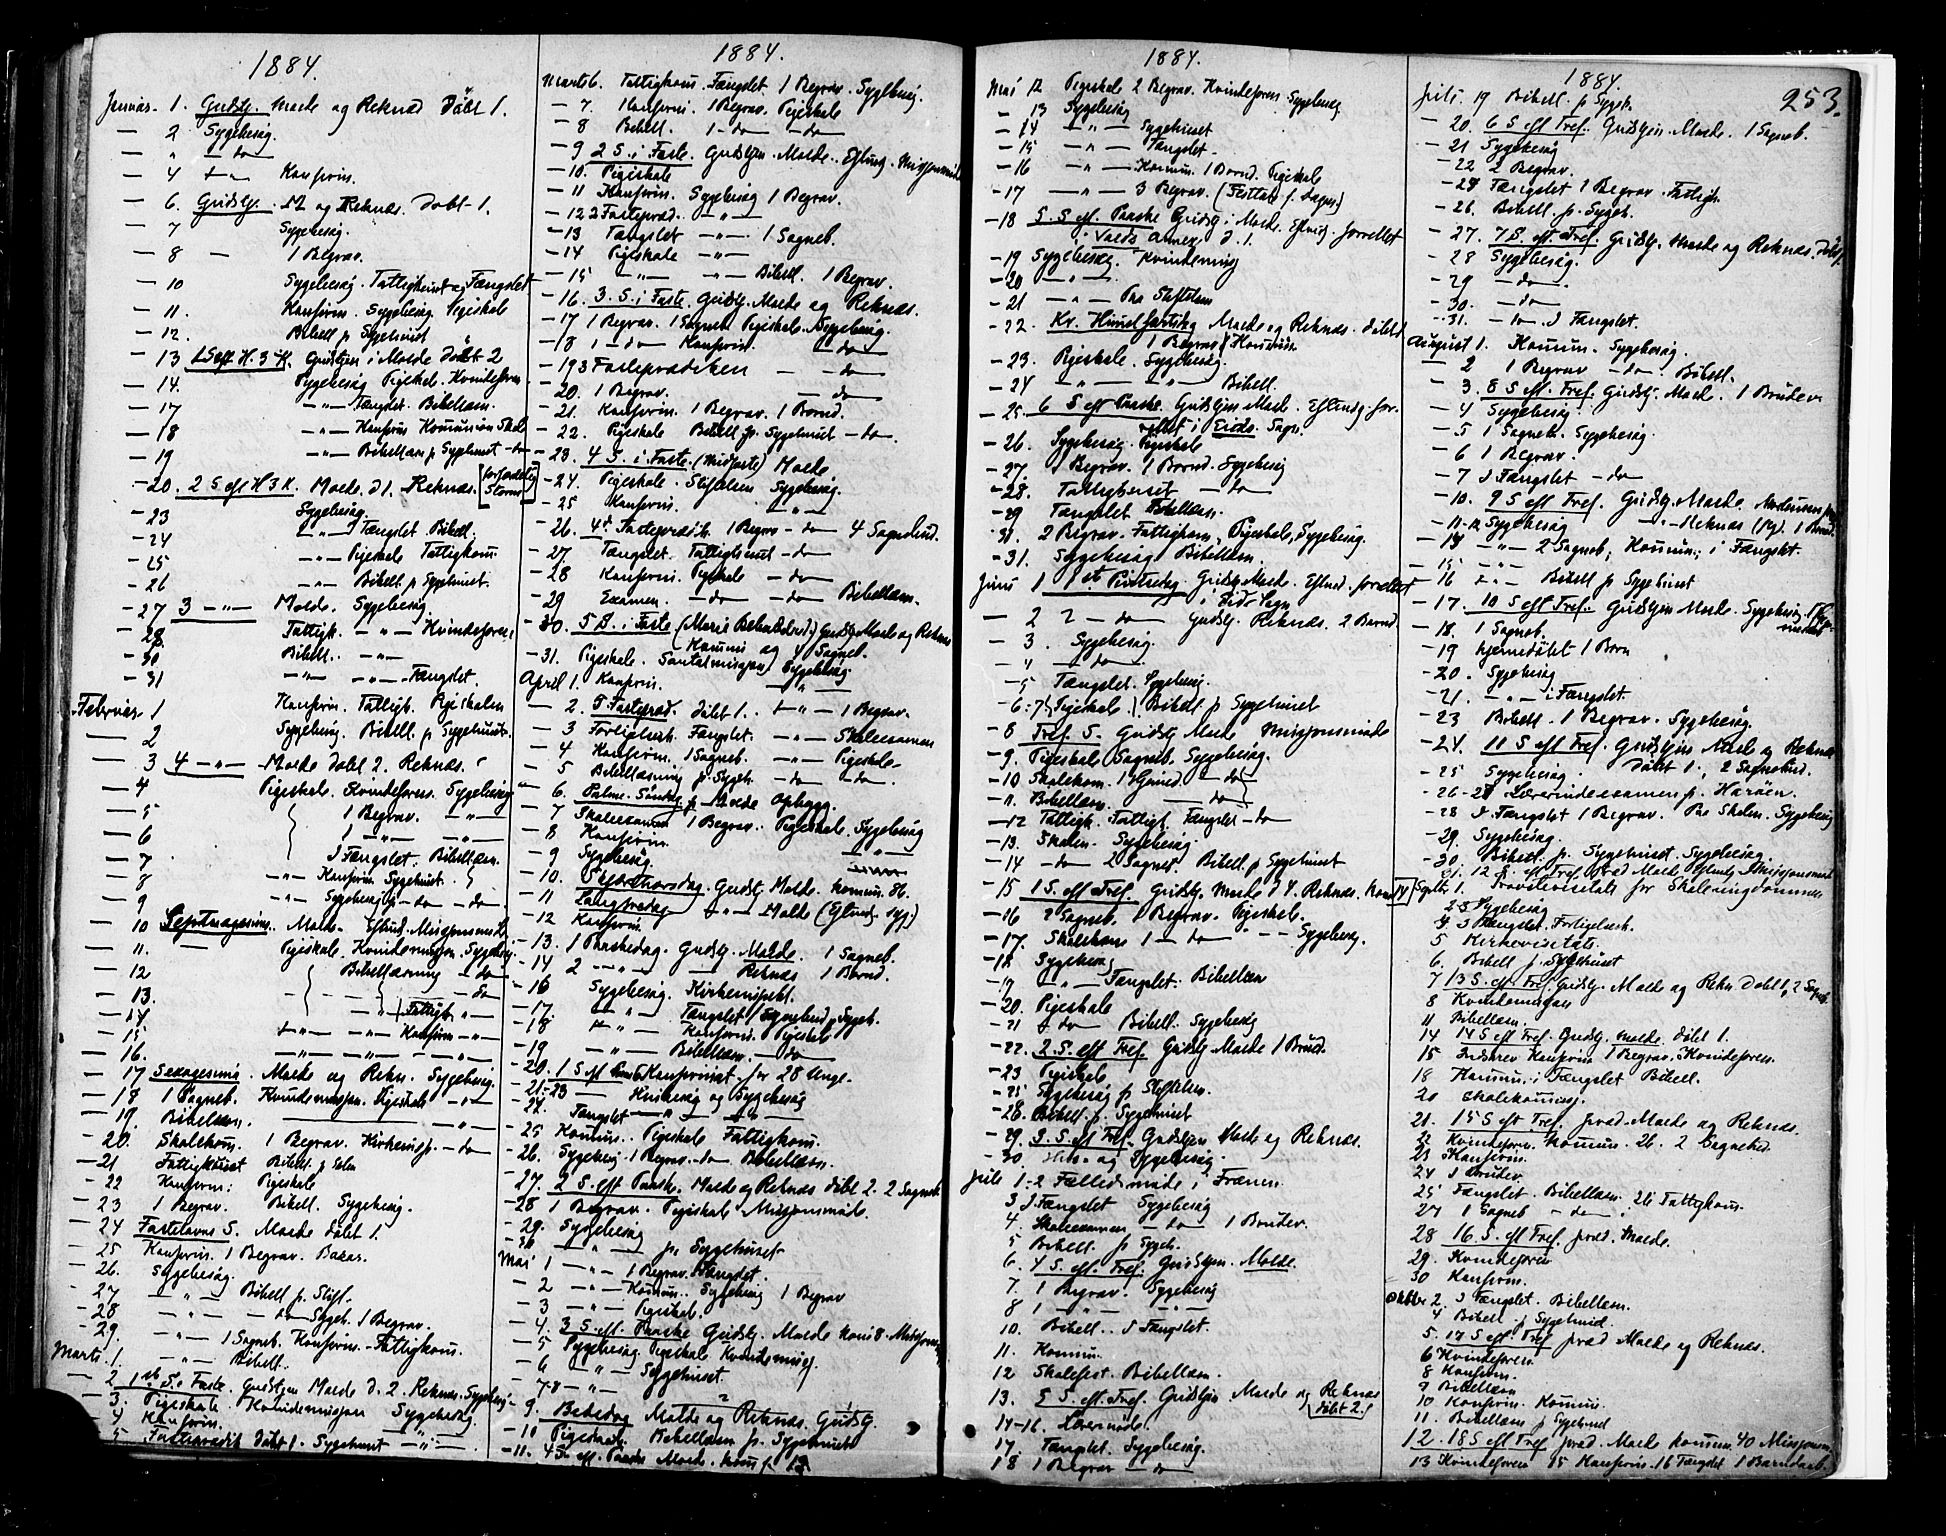 253.
1884.
Januar. 1. Gudstj. Molde og Reknæs Döbt 1.
— 2 Sygebesøg.
— " — do
— 4 — " — Konfirm.
— 6. Gudstj. M og Reknæs. Döbt 1.
— 7 Sygebesøg.
— 8 — 1 Begrav.
— 10 Sygebesøg. Fattighuset og Fængslet
— 11. Konfirm. Sygebesøg. Pigeskole
— 12. Bibell p Sygehuset
— 13 1 S eft H. 3 K. Gudstjen i Molde Döbt 2
— 14. Sygebesøg Pigeskol. Kvindeforen
— 17 — " — Fængslet. Bibellæsn.
— 18 — " — Konfirm Kommunion Skole
— 19 — " — Bibellæsn p Sygehuset — do
— 20. 2 S eft H 3 K. Molde. D 1. Reknæs. [forfærdelig Storm]
— 23 Sygebesøg
— 24 — " — Fængslet Bibell.
— 25 — " — Pigeskole Fattigkom.
— 26 — " — Bibell. p Sygehuset.
— 27 3 — " — Molde. Sygebesøg.
— 28 Fattigk. — " — Kvindeforen:
— 30 Bibell. — " —
— 31 — " — Fængslet.
Februar 1 Konfirm. Fattigk. Pigeskolen
— 2 Sygebesøg. Bibell. p Sygehuset.
— 3 4 — " — Molde Döbt 2. Reknæs.
— 4 Pigeskole. Kvindeforen. Sygebesøg
— 5 1 Begrav. — " —
— 6 1 — " — — " —
— 7 I Fængslet. Bibellæsn.
— 8 — " — Konfirm. Sygehuset.
— 9 — " — Sygebesøg — do — do
— 10 Septuagesima. Molde.
— 11. Pigeskole. Kvindemissjon. Sygebesøg
— 12 Bibellæsning — do
— 13. — do
— 14 Fattigk. — " —
— 15 — " — — " — Konfirm — " —
— 16. — " — — " — — " —
— 17 Sexagesima. Molde og Rekn. Sygebesøg.
— 18 1 Sogneb. Kvindemissjon. Pigeskole — " —
— 19. Bibellæsn. — " —
— 20. Skolekom. 1 Begrav. Kirkeinsp. — do
— 21 Fattighuset Bibell.
— 22 Konfirm: Pigeskole
— 23 1 Begrav. Bibell. Sygebesøg.
— 24 Fastelavns S. Molde Döbt 1.
— 25 Konfirm. 1 Begrav. Bazar.
— 26. Sygebesøg.
— 27 — " — Bibell p. Stift.
— 28 — " — — do Sygeh. 1 Begrav.
— 29. — " — 1 Sogneb. Konfirm. Fattigkom.
Marts. 1 — " — Bibell.
— 2 1ste S. i Faste. Gudstjen Molde D. 2. Reknæs. Sygebesøg
— 3. Pigeskole. Kvindemissjon Sygebesøg
— 4 Konfirm.
— 5 Fastepræd. Döbt 1. Sygehuset — " —
1884.
Marts 6. Fattigkom. Fængslet 1 Begrav. Sygebesøg.
— 7. Konfirm. 1 Begrav. Pigeskole
— 8 Bibell. 1 — do — do
— 9 2 S. i Faste. Gudstjen. Molde. Eftmdg. Missjonsmöde
— 10. Pigeskole
— 11 Konfirm. Sygebesøg 1 Begrav.
— 12 2 Fastepræd. — " —
— 13 Fængslet — " — 1 Sogneb.
— 14 Pigeskole — " —
— 15 — " — — " — Bibell. 1 Begrav.
— 16. 3. S. i Faste. Gudstj. Molde og Reknæs.
— 17 1 Begrav. 1 Sogneb. Pigeskole. Sygebesøg.
— 18 1 — do Konfirm. — do
— 19 3 Fasteprædiken — — do
— 20. 1 Begrav. — do
— 21. Konfirm. 1 Begrav. 1 Barnd.
— 22. Pigeskole Bibell p. Sygehuset — do.
— 23. 4 S. i Faste. (Midfaste) Molde
— 24. Pigeskole. Stiftelsen Sygebesøg.
— 25 Konfirm. — " —
— 26. 4d Fastepræd. 1 Begrav — do 4 Sognebud.
— 27 Fængslet. Fattighuset — do
— 28 Konfirm. Pigeskole — do
— 29 Examen. — do — do Bibellæsn.
— 30. 5 S. i Faste Gudstj. Molde og Reknæs
— 31. Pigeskole. Santalmissjon Sygebesøg
April 1. Konfirm. — " —
— 2. 5 Fastepræd. Döbt 1. — " — 1 Begrav.
— 3 Forligelsesk. Fængslet. — " — Skoleexamen
— 4 Konfirm. 1 Sogneb. — " — Pigeskole
— 5 Bibellæsning p. Sygeh. — do — do.
— 6. Palme-Søndag p Molde
— 7 Skoleexamen 1 Begrav. Pigeskol. Sygebesøg
— 8 Konfirm. — " —
— 9 Sygebesøg.
— 10. Skjærthorsdag. Gudst. Molde. Komm. 86.
— 11 Langfredag — " — Molde
— 12 Konfirm.
— 13. 1 Paaskedag. Gudstj. Molde. 1 Sogneb.
— 14 2 — " — — Reknæs 1 Barnd.
— 16 Sygebesøg. Kirkeinspekt.
— 17. — " — Fængslet Sognebud p Sygeh.
— 18 — " — Konfirm. Pigeskol
— 19 — " — Bibellæsn. — do
— 20. 1 S eft Paaske Konfirmat. for 28 Unge.
— 21-23 Husbesøg og Sygebesøg
— 24. Fængslet — " — — " —
— 25 Kommu. Pigeskole Fattigkom.
— 26. Sygebesøg. 1 Begrav. — do Bibellæsn.
— 27. 2 S. eft Paaske. Molde og Reknæs Döbt 2. 2 Sogneb
— 28 1 Begrav. Pigeskole Missjonsmöde.
— 29. Sygebesøg
— 30 — " — p. Sygehuset
Mai 1 — " — 1 Begrav. Fængslet.
— 2 — " — Kommu. Sygebesøg 1 Begrav
— 3 — " — Pigeskol.
— 4 3 S. eft. Paaske Gudstj. Molde
— 5 Sygebesøg. Pigeskole Kvindemissj.
— 6 — " — Sygehuset.
— 7-8 — " —
— 9. Bededag Molde og Reknæs. Gudstj.
— 10 Pigeskole Bibellæsn p. Sygehuset
— 11. 4 S. eft. Paaske Molde. Kom
1884.
Mai 12 Pigeskole 2 Begrav. Kvindeforen. Sygebesøg
— 13 Sygebesøg
— 14 — " — Sygehuset
— 15 — " — Fængslet.
— 16 — " — Kommu. 1 Barnd. Pigeskole
— 17 — " — 3 Begrav. (Festtale f. Dagen.)
— 18 5. S eft. Paaske Gudstj i Molde. Eftmdg. forrettet
— 19 Sygebesøg. Kvindemissj
— 20 — " —
— 21 — " — Paa Stiftelsen
— 22. Kr. Himmelfartsdag Molde og Reknæs. Döbt 1
1 Begrav
— 23. Pigeskole. Sygebesøg.
— 24 — " — — " — Bibell.
— 25. 6 S eft Paaske Gudstjen Molde. Eftmdg. for-
rettet i Eids Sogn.
— 26. Sygebesøg. Pigeskole
— 27. 1 Begrav. 1 Barnd. Sygebesøg
— 28. Fattighuset — do
— 29 Fængslet Bibellæsn.
2 Begrav. Fattigkom. Pigeskole, Sygebesøg.
— 31. Sygebesøg Bibellæsn.
Juni 1 1ste Pintsedag Gudstj. Molde. Eftmd. forrettet
i Eids Sogn
— 2 2 — do Gudstj. Reknæs. 2 Barnd.
— 3. Sygebesøg.
— " — do
— 5 Fængslet. Sygebesøg.
— 6: 7 Pigeskole. Bibell p Sygehuset
— 8 Tref. S. Gudstj Molde Missjonsmöde
— 9. Pigeskole 1 Sogneb. Sygebesøg.
— 10 Skolekom. — do
— 11. Bibellæsn. — do
— 12 Fattigk. Fængslet — do
— 13. Skolen. Sygebesøg.
— 14 — do 2 Sogneb. Bibell. p Sygehuset
— 15 1 S. eft Tref. Gudstj. Molde D 4. Reknæs.
— 16 2 Sogneb. 1 Begrav. Pigeskole.
— 17. Skolekom 1 — do — — Sygebesøg.
— 18 Sygebesøg
— 19 — " — Fængslet. Bibellæsn
— 20. Pigeskole
— 21 — do Bibell. Sygebesøg
— 22. 2. S. eft Tref. Gudstj Molde 1 Brud.
— 23 Pigeskole
— 25 Sygebesøg p Stiftelsen.
— 28. Bibell. p. Sygehuset
— 29. 3. S. eft Tref. Gudstjen Molde og Reknæs.
— 30 Hus- og Sygebesøg.
Juli 1-2 Fællesmöde i Frænen.
3 I Fængslet Sygebesøg
4. Skoleexamen — do 1 Brudev.
5 Bibell. p Sygeh.
6. 4 S. eft. Tref. Gudstjen. Molde.
7. 1 Begrav. Sygebesøg
8 1 — " — — " —
10. Bibell. I Fængslet.
11. Kommu.
12 Skolefest. Bibellæsn.
13. 5 S. eft Tref. Gudstjen. Molde og Reknæs
Döbt 2.
14-16. Lærermöde.
17. Fængslet. Sygebesøg.
18 1 Begrav — do
1884.
Juli. 19 Bibell. p Sygeh.
— 20. 6 S eft Tref. Gudstjen. Molde. 1 Sogneb.
— 21 Sygebesøg
— 22 2 Begrav.
— 24 Fængslet 1 Begrav. Fattigk.
— 26. Bibell. p. Sygeh.
— 27. 7 S. eft. Tref. Gudstj. Molde og Reknæs. Döbt 1.
— 28 Sygebesøg.
— 29 — do —
— 30. — do
— 31. — do. I Fængslet.
August 1. Kommu. Sygebesøg.
— 2 1 Begrav — do — Bibell.
— 3. 8 S eft. Tref. Gudstj. Molde. 1 Brudev
— 4 Sygebesøg.
— 5 1 Sogneb. Sygebesøg.
— 6 1 Begrav.
— 7 I Fængslet — do
— 10. 9 S eft Tref. Gudstj. Molde.
— 11-12 Sygebesøg
— 14 — " — 2 Sogneb; Kommu; i Fængslet.
— 15 — " —
— 16 — " — Bibell p Sygehuset
— 17. 10 S eft Tref. Gudstjen Molde. Sygebesøg
— 18. 1 Sogneb.
— 19 hjemmedöbt 1 Barn
— 20. Sygebesøg
— 21. — " — i Fængslet.
— 23 Bibell. 1 Begrav. Sygebesøg.
— 24. 11 S eft Tref. Gudstjen Molde og Reknæs
— 25 Sygebesøg. Döbt 1., 2 Sognebud.
— 26-27 Lærerindeexamen p. Haröen.
— 28 I Fængslet 1 Begrav. Paa Skolen. Sygebesøg
— 29. Sygebesøg.
— 30. Bibell. p. Sygehuset. Sygebesøg
— 31. 12 S. eft Tref. Præd Molde Eftmdg Missjonsmöde
Septbr 1. Provstevisitats for Skoleungdommen
2-3 Sygebesøg
4. I Fængslet. Forligelsesk.
5 Kirkevisitats.
6. Bibell p. Sygehuset
7 13 S. eft Tref. Gudstj. Molde og Rekn Döbt 1, 2 Sogneb.
8 Kvindemissjon
11 Bibellæsn.
14 14 S eft Tref. Gudstj. Molde. Döbt 1.
15 Indskrev Konfirm 1 Begrav. Kvindeforen.
18 Kommu. i Fængslet Bibell.
20 Skolekommiss.
21. 15 S eft Tref. præd. Molde og Reknæs.
22 Kvindeforen. Kommu. 2 Sognebud.
23 Konfirm.
24 1 Brudev
25 Fængslet. Bibellæsn. Fattigkom.
27 1 Sogneb — do
28 16. S. eft Tref. præd. Molde.
29. Kvindeforen
30 Konfirm.
Oktbr 2. I Fængslet. Bibellæsn.
4 Bibell. p Sygehuset.
5. 17 S eft Tref præd Molde og Reknæs.
6 Kvindeforen.
8 Konfirm.
9 Bibellæsn
10 Konfirm. Kommu.
11. Bibellæsn p Sygehuset
12. 18 S eft Tref præd. Molde Kommu. 40 Missjonsm.
13 Kvindeforen 15 Konfirm. 16 Fængslet 1 Barndaab.